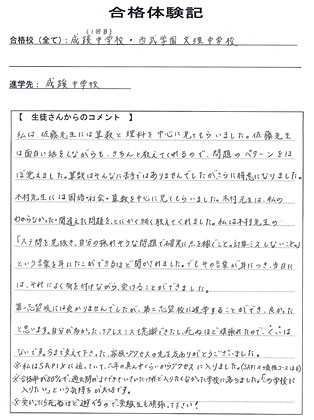 合格体験記
(1回目)
合格校（全て）：成蹊中学校・西武学園文理中学校
進学先：成蹊中学校
【 生徒さんからのコメント 】
私は、佐藤先生には算数と理科を中心に見てもらいました。佐藤先生
は面白い話をしながらも、きちんと教えてくれるので、問題のパターンをほ
ぼ覚えました。算数はそんなに苦手ではありませんでしたが、さらに得意になりました。
木村先生には国語・社会・算数を中心に見てもらいました。木村先生は、私の
わからなかった・間違えた問題を、とにかく細く教えてくれました。私は木村先生の
「ステ問を見抜き、自分の採れそうな問題で確実に点を稼ぐこと。計算ミスしないこと。」
という言葉を耳にたこができるほど聞かされました。でもその言葉が身につき、当日に
は、それによく気を付けながら受けることができました。
第一志望校には受かりませんでしたが、第二志望校に進学することができ、良かった
と思います。自分が努力した
ないです。今まで支えて下さった、家族・アクセスの先生方ありがとうございました。
※私はSAPIXに通っていて、六年の真ん中くらいからアクセスに入りました。
※合格率が80%で、過去問がよくできていたけれど入りたくなかった学校に落ちました。「この学校に
入りたい」という気持ちが大切です。
※受かったら死ぬほど遊べるので、受験生も頑張って下さい！